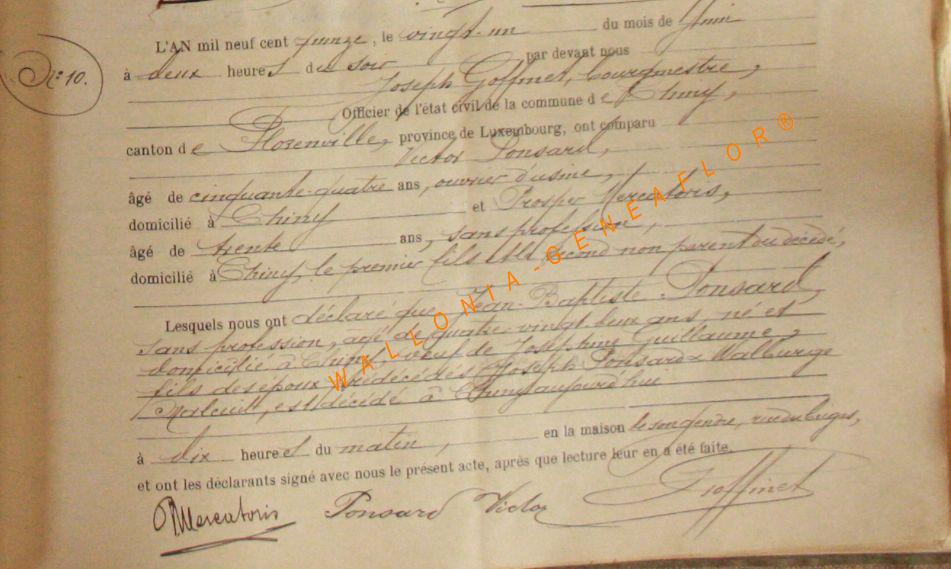 N° 10.
L'AN mil neuf cent quinze, le vingt-un du mois de Juin
à deux heures du soir par devant nous
Joseph Goffinet, bourgmestre,
Officier de l'état civil de la commune de Chiny,
canton de Florenville, province de Luxembourg, ont comparu
Victor Ponsard,
âgé de cinquante-quatre ans, ouvrier d'usine,
domicilié à Chiny et Prosper Mercatoris,
âgé de trente ans, sans profession,
domicilié à Chiny, le premier fils et le second non parent du décédé,
Lesquels nous ont déclaré que Jean-Baptiste Ponsard,
sans profession, âgé de quatre-vingt-deux ans, né et
domicilié à Chiny, veuf de Joséphine Guillaume,
fils des époux prédécédés Joseph Ponsard & Walburge
est décédé à Chiny aujourd'hui
à dix heures du matin, en la maison de son gendre, rue du
et ont les déclarants signé avec nous le présent acte, après que lecture leur en a été faite.
PMercatoris Ponsard Victor Goffinet
WALLONIA-GENEAFLOR®